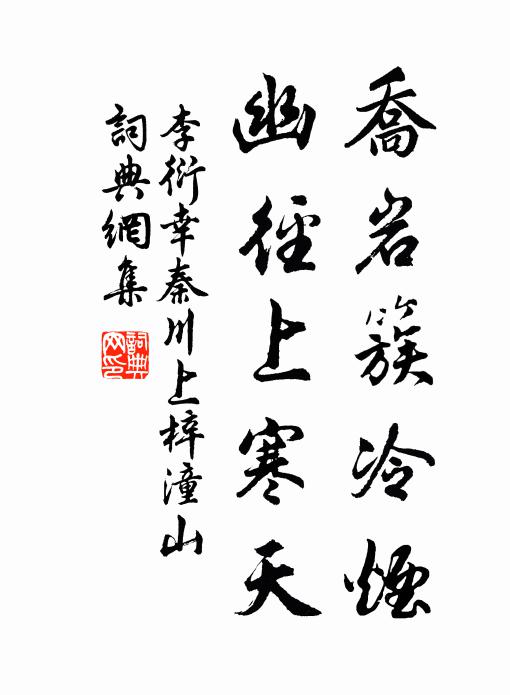 喬岩簇冷煙
幽徑上寒天
李衍幸秦川上梓潼山
詞典網集
詞典網印